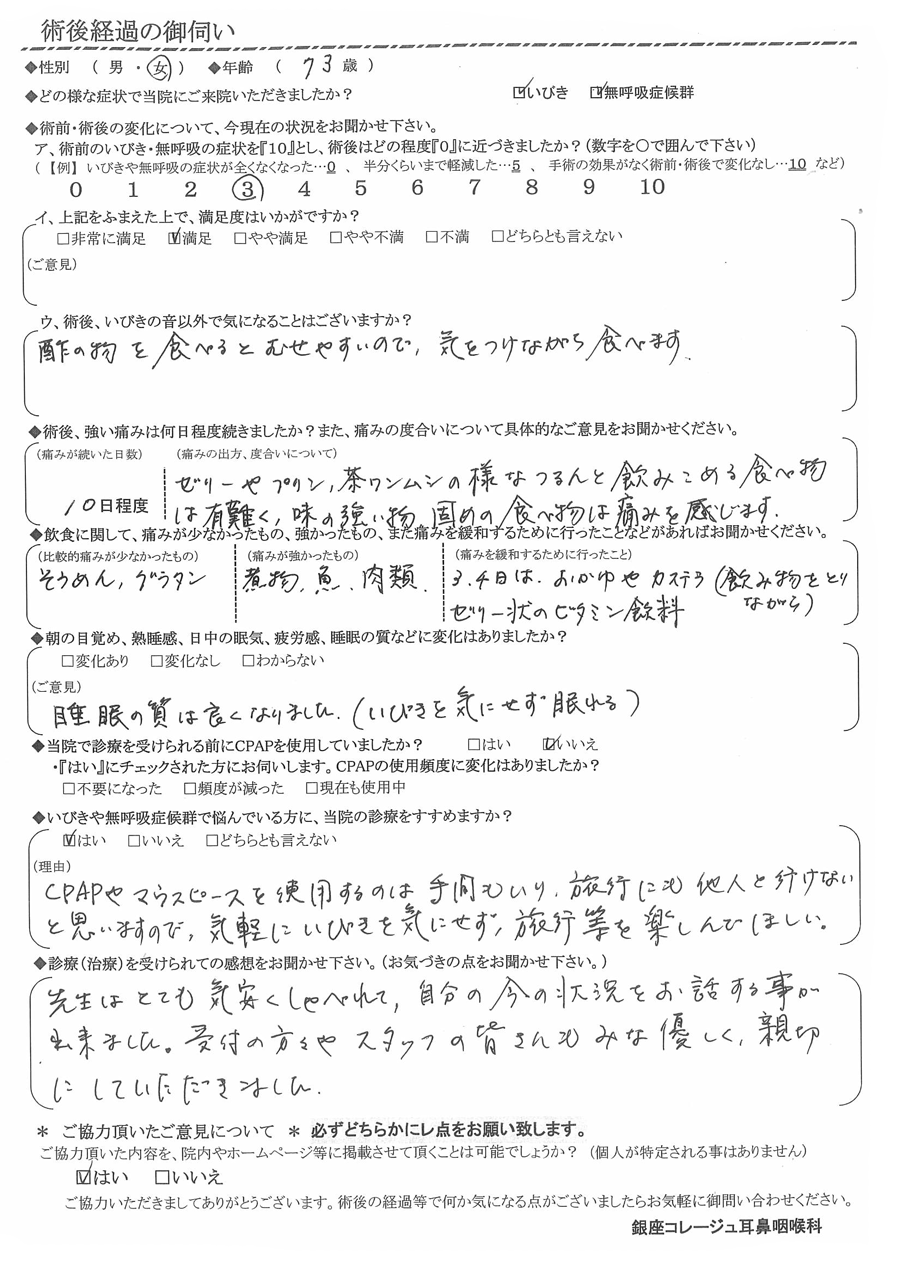 術後経過の御伺い
◆性別 ( 男 ・ 女 ) ◆年齢 ( 73 歳 )
◆どの様な症状で当院にご来院いただきましたか? ☑いびき ☑無呼吸症候群
◆術前・術後の変化について、今現在の状況をお聞かせ下さい。
ア、術前のいびき・無呼吸の症状を『10』とし、術後はどの程度『0』に近づきましたか?(数字を〇で囲んで下さい)
(【例】 いびきや無呼吸の症状が全くなくなった…0 、 半分くらいまで軽減した…5 、 手術の効果がなく術前・術後で変化なし…10 など)
0 1 2 3 4 5 6 7 8 9 10
イ、上記をふまえた上で、満足度はいかがですか?
□非常に満足 ☑満足 □やや満足 □やや不満 □不満 □どちらとも言えない
(ご意見)
ウ、術後、いびきの音以外で気になることはございますか?
酢の物を食べるとむせやすいので、気をつけながら食べます。
◆術後、強い痛みは何日程度続きましたか?また、痛みの度合いについて具体的なご意見をお聞かせください。
(痛みが続いた日数) (痛みの出方、度合いについて)
ゼリーやプリン、茶ワンムシの様なつるんと飲みこめる食べ物
10日程度 は有難く、味の強い物 固めの食べ物は痛みを感じます。
◆飲食に関して、痛みが少なかったもの、強かったもの、また痛みを緩和するために行ったことなどがあればお聞かせください。
(比較的痛みが少なかったもの) (痛みが強かったもの) (痛みを緩和するために行ったこと)
そうめん、グラタン 煮物、魚、肉類、 3.4日は、おかゆやカステラ(飲み物をとりながら)
ゼリー状のビタミン飲料
◆朝の目覚め、熟睡感、日中の眠気、疲労感、睡眠の質などに変化はありましたか?
□変化あり □変化なし □わからない
(ご意見)
睡眠の質は良くなりました。(いびきを気にせず眠れる)
◆当院で診療を受けられる前にCPAPを使用していましたか? □はい ☑いいえ
・『はい』にチェックされた方にお伺いします。CPAPの使用頻度に変化はありましたか?
□不要になった □頻度が減った □現在も使用中
◆いびきや無呼吸症候群で悩んでいる方に、当院の診療をすすめますか?
☑はい □いいえ □どちらとも言えない
(理由)
CPAPやマウスピースを使用するのは手間もいり、旅行にも他人と行けない
と思いますので、気軽にいびきを気にせず、旅行等を楽しんでほしい。
◆診療(治療)を受けられての感想をお聞かせ下さい。(お気づきの点をお聞かせ下さい。)
先生はとても気安くしゃべれて、自分の今の状況をお話する事が
出来ました。受付の方々やスタッフの皆さんもみな優しく、親切
にしていただきました。
＊ ご協力頂いたご意見について ＊ 必ずどちらかにレ点をお願い致します。
ご協力頂いた内容を、院内やホームページ等に掲載させて頂くことは可能でしょうか? (個人が特定される事はありません)
☑はい □いいえ
ご協力いただきましてありがとうございます。術後の経過等で何か気になる点がございましたらお気軽に御問い合わせください。
銀座コレージュ耳鼻咽喉科